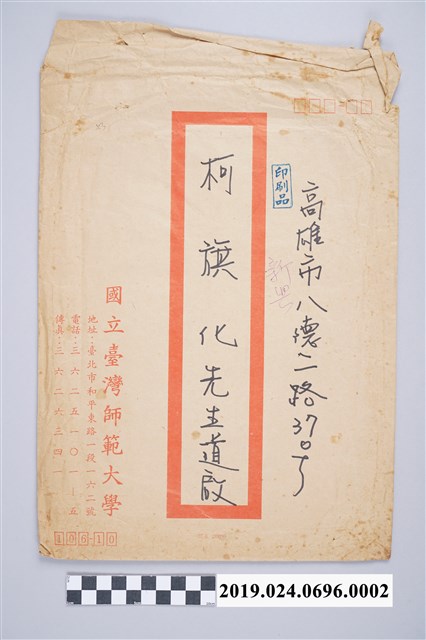 高雄市八德二路37号
印刷品
新興
柯旗化先生道啟
國立臺灣師範大學
地址：臺北市和平東路一段一六二號
電話：三六二五一〇一—五
傳真：三六二六三四一
10610
2019.024.0696.0002